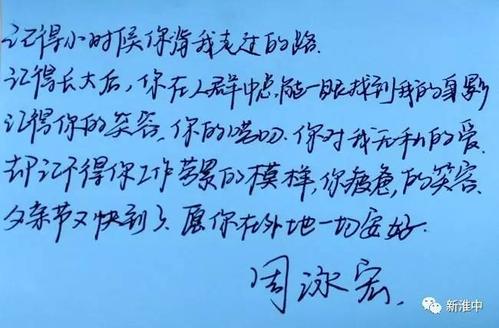 记得小时候你背我走过的路.
记得长大后,你在人群中总能一眼找到我的身影
记得你的笑容,你的唠叨.你对我无私的爱.
却记不得你工作劳累的模样,你疲惫,的笑容.
父亲节又快到了.愿你在外地一切安好.
周泳宏.
新淮中